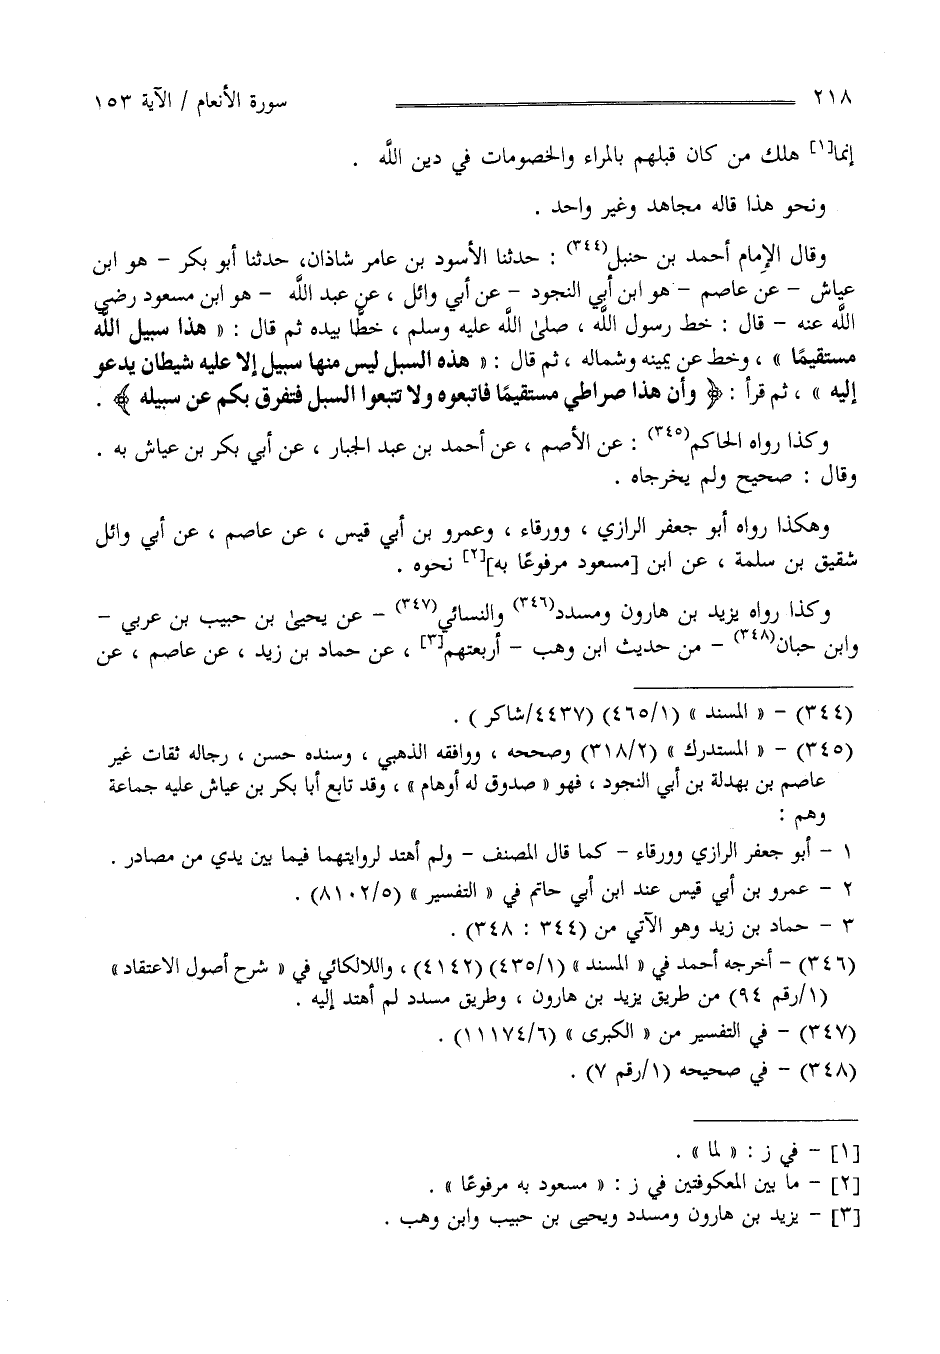 ٢١٨ سورة الأنعام / الآية ١٥٣
إنما[١] هلك من كان قبلهم بالمراء والخصومات في دين اللَّه .
ونحو هذا قاله مجاهد وغير واحد .
وقال الإمام أحمد بن حنبل(٣٤٤) : حدثنا الأسود بن عامر شاذان، حدثنا أبو بكر – هو ابن
عياش – عن عاصم – هو ابن أبي النجود – عن أبي وائل ، عن عبد اللَّه – هو ابن مسعود رضي
اللَّه عنه – قال : خط رسول اللَّه ، صلىٰ اللَّه عليه وسلم ، خطًّا بيده ثم قال : « هذا سبيل اللَّه
مستقيمًا » ، وخط عن يمينه وشماله ، ثم قال : « هذه السبل ليس منها سبيل إلا عليه شيطان يدعو
إليه » ، ثم قرأ : ﴿ وأن هذا صراطي مستقيمًا فاتبعوه ولا تتبعوا السبل فتفرق بكم عن سبيله ﴾ .
وكذا رواه الحاكم(٣٤٥) : عن الأصم ، عن أحمد بن عبد الجبار ، عن أبي بكر بن عياش به .
وقال : صحيح ولم يخرجاه .
وهكذا رواه أبو جعفر الرازي ، وورقاء ، وعمرو بن أبي قيس ، عن عاصم ، عن أبي وائل
شقيق بن سلمة ، عن ابن [مسعود مرفوعًا به][٢] نحوه .
وكذا رواه يزيد بن هارون ومسدد(٣٤٦) والنسائي(٣٤٧) – عن يحيىٰ بن حبيب بن عربي –
وابن حبان(٣٤٨) – من حديث ابن وهب – أربعتهم[٣] ، عن حماد بن زيد ، عن عاصم ، عن
(٣٤٤) – « المسند » (٤٦٥/١) (٤٤٣٧/شاكر ) .
(٣٤٥) – « المستدرك » (٣١٨/٢) وصححه ، ووافقه الذهبي ، وسنده حسن ، رجاله ثقات غير
عاصم بن بهدلة بن أبي النجود ، فهو « صدوق له أوهام » ، وقد تابع أبا بكر بن عياش عليه جماعة
وهم :
١ – أبو جعفر الرازي وورقاء – كما قال المصنف – ولم أهتد لروايتهما فيما بين يدي من مصادر .
٢ – عمرو بن أبي قيس عند ابن أبي حاتم في « التفسير » (٨١٠٢/٥) .
٣ – حماد بن زيد وهو الآتي من (٣٤٤ : ٣٤٨) .
(٣٤٦) – أخرجه أحمد في « المسند » (٤٣٥/١) (٤١٤٢) ، واللالكائي في « شرح أصول الاعتقاد »
(١/رقم ٩٤) من طريق يزيد بن هارون ، وطريق مسدد لم أهتد إليه .
(٣٤٧) – في التفسير من « الكبرى » (١١١٧٤/٦) .
(٣٤٨) – في صحيحه (١/رقم ٧) .
[١] – في ز : « لما » .
[٢] – ما بين المعكوفتين في ز : « مسعود به مرفوعًا » .
[٣] – يزيد بن هارون ومسدد ويحيى بن حبيب وابن وهب .